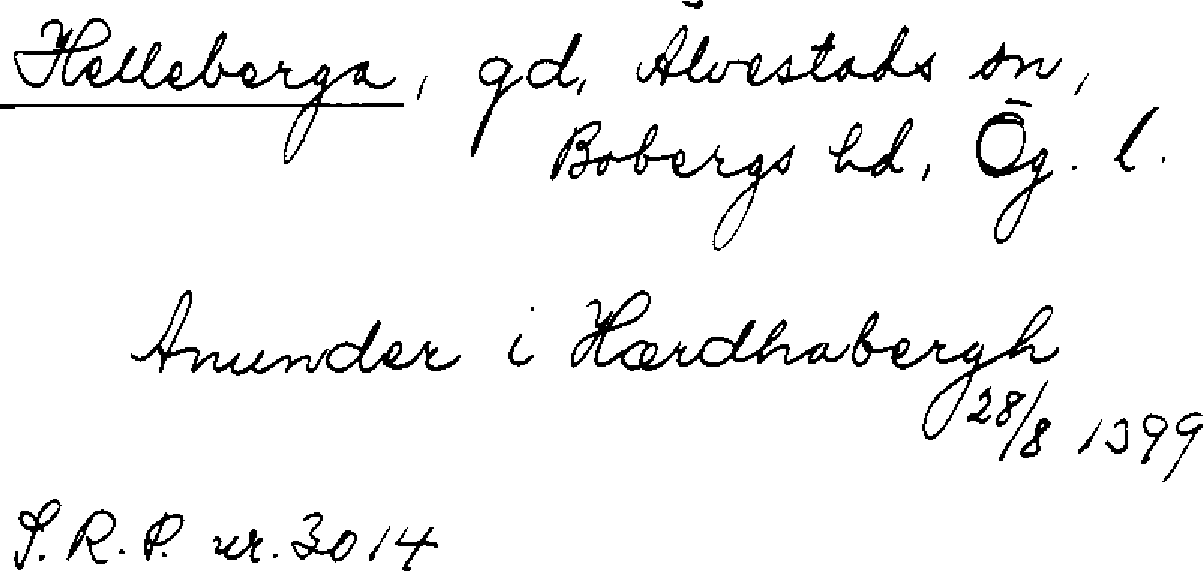 Helleberga, gd, Älvestads sn,
Bobergs hd, Ög. l.
Anunder i Hærdhabergh
28/8 1399
S.R.P. nr. 3014